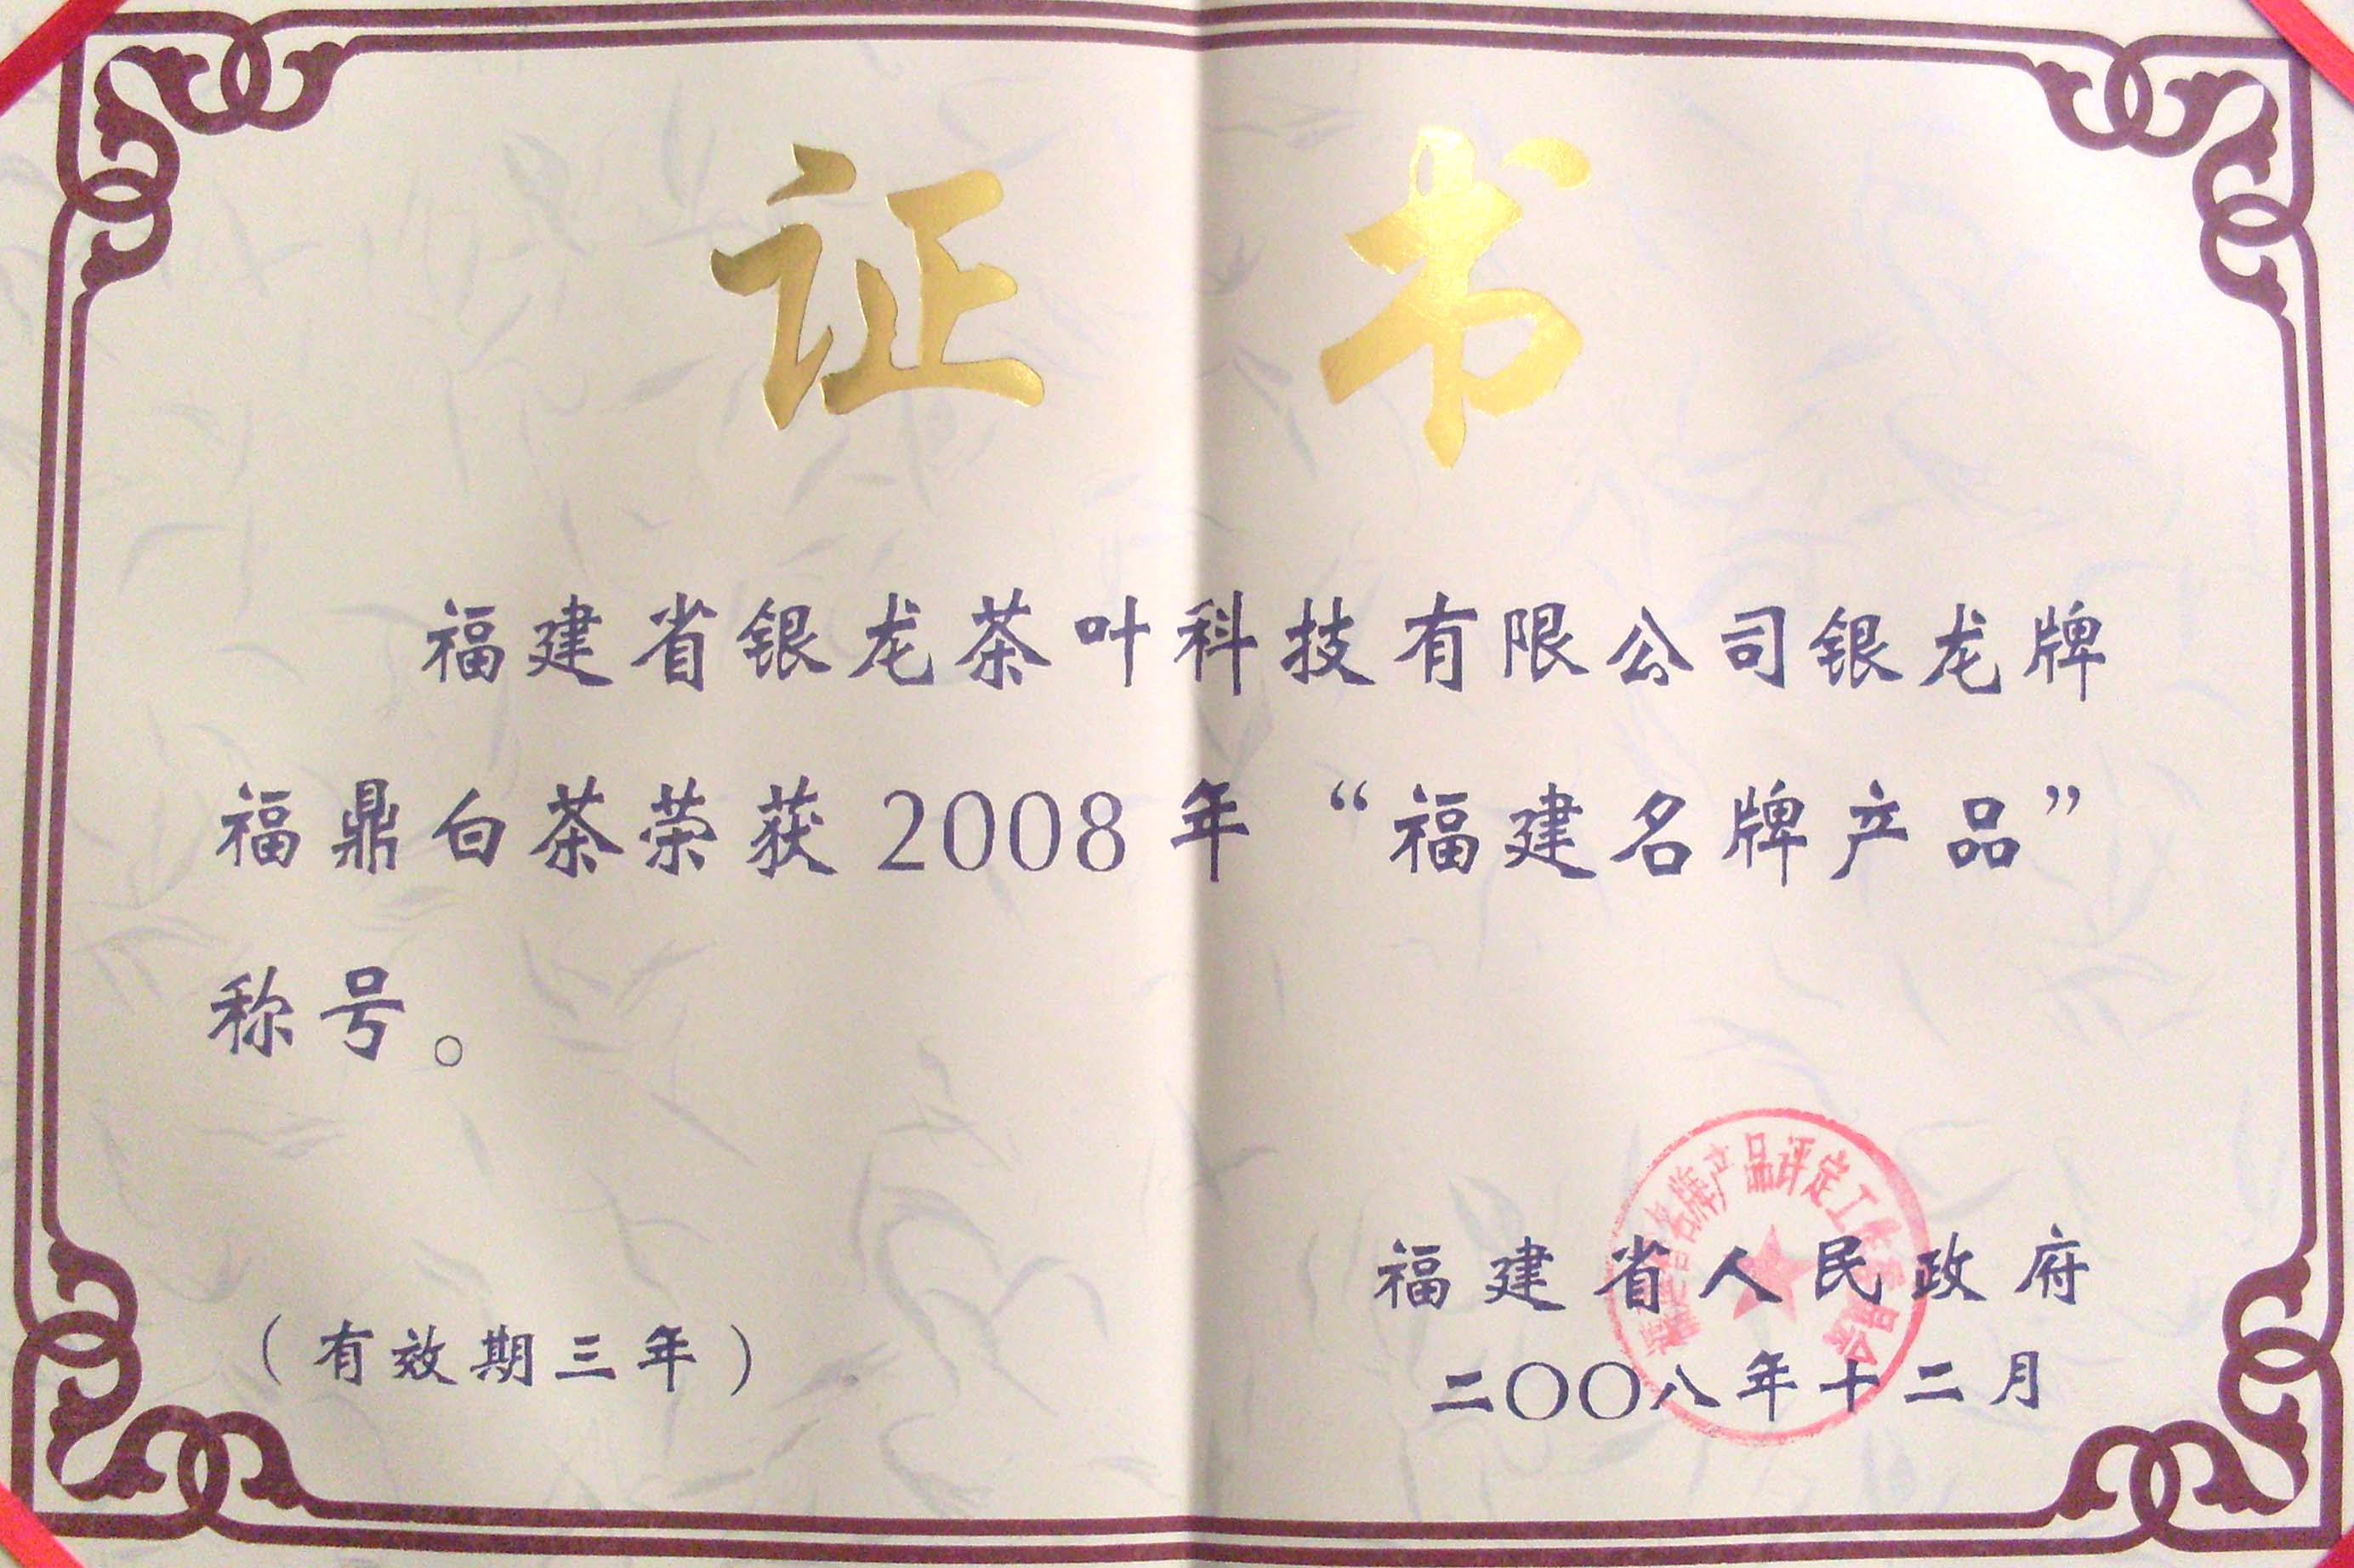 证书
福建省银龙茶叶科技有限公司银龙牌
福鼎白茶荣获2008年“福建名牌产品”
称号。
福建省名牌产品评定工作委员会
福建省人民政府
（有效期三年）
二〇〇八年十二月